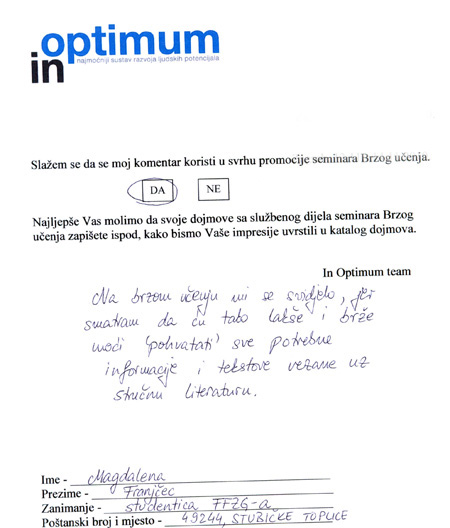 in optimum
najmoćniji sustav razvoja ljudskih potencijala
Slažem se da se moj komentar koristi u svrhu promocije seminara Brzog učenja.
DA NE
Najljepše Vas molimo da svoje dojmove sa službenog dijela seminara Brzog
učenja zapišete ispod, kako bismo Vaše impresije uvrstili u katalog dojmova.
In Optimum team
Na brzom učenju mi se svidjelo, jer
smatram da ću tako lakše i brže
moći 'pohvatati' sve potrebne
informacije i tekstove vezane uz
stručnu literaturu.
Ime - Magdalena
Prezime - Franjčec
Zanimanje - studentica FFZG-a
Poštanski broj i mjesto - 49244, STUBIČKE TOPLICE